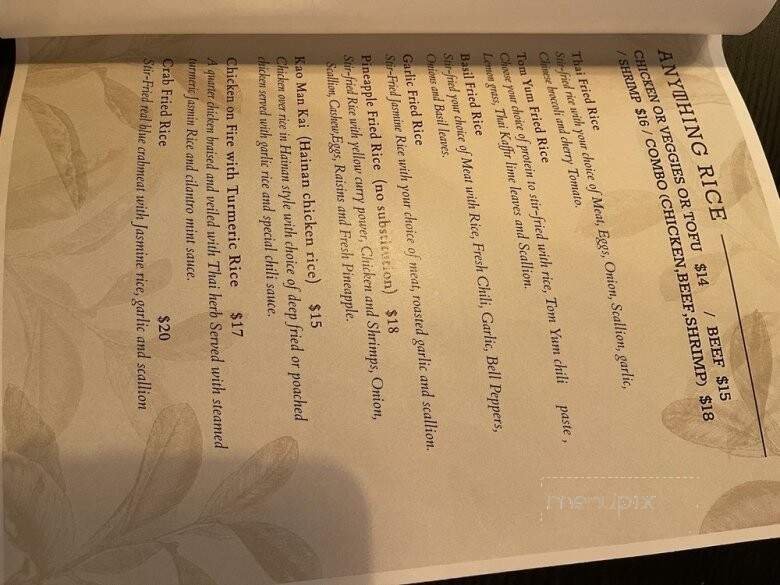 ANYTHING RICE
CHICKEN OR VEGGIES OR TOFU $14 / BEEF $15
/ SHRIMP $16 / COMBO (CHICKEN,BEEF,SHRIMP) $18
Thai Fried Rice
Stir-fried rice with your choice of Meat, Eggs, Onion, Scallion, garlic,
Chinese broccoli and cherry Tomato.
Tom Yum Fried Rice
Choose your choice of protein to stir-fried with rice, Tom Yum chili paste ,
Lemon grass, Thai Kaffir lime leaves and Scallion.
Basil Fried Rice
Stir-fried your choice of Meat with Rice, Fresh Chili, Garlic, Bell Peppers,
Onions and Basil leaves.
Garlic Fried Rice
Stir-Fried Jasmine Rice with your choice of meat, roasted garlic and scallion.
Pineapple Fried Rice (no substitution) $18
Stir-fried Rice with yellow curry power, Chicken and Shrimps, Onion,
Scallion, Cashew,Eggs, Raisins and Fresh Pineapple.
Kao Man Kai (Hainan chicken rice) $15
Chicken over rice in Hainan style with choice of deep fried or poached
chicken served with garlic rice and special chili sauce.
Chicken on Fire with Turmeric Rice $17
A quater chicken braised and veiled with Thai herb Served with steamed
turmeric Jasmin Rice and cilantro mint sauce.
Crab Fried Rice $20
Stir-Fried real blue crabmeat with Jasmine rice, garlic and scallion
menupix